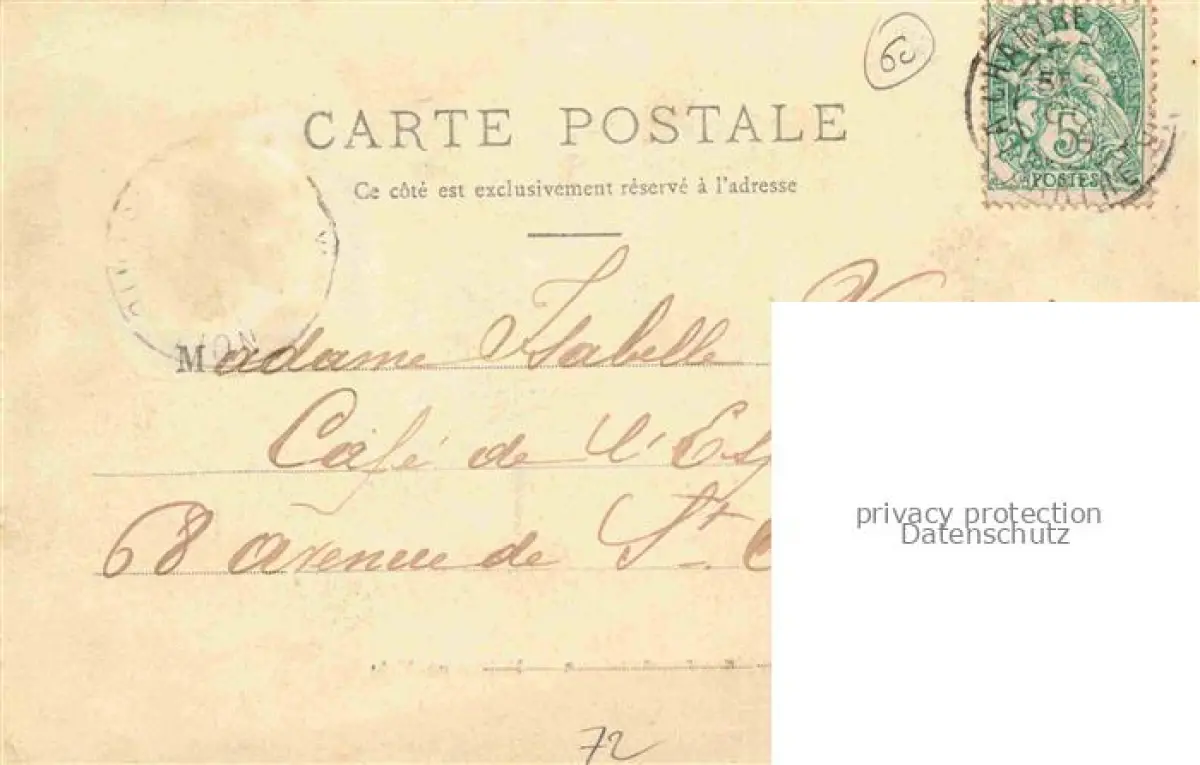 6c
CARTE POSTALE
Ce côté est exclusivement réservé à l'adresse
5
POSTES
Madame Isabelle
Café de l'Es
68 avenue de St.
privacy protection
Datenschutz
72